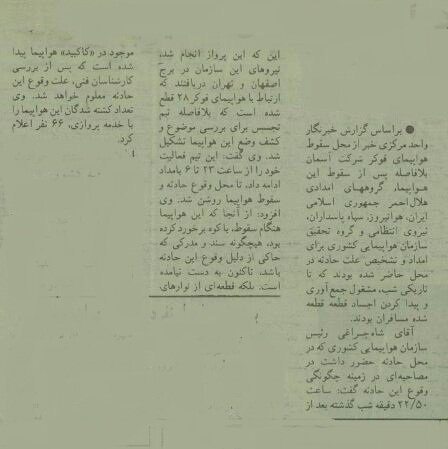 ● براساس گزارش خبرنگار
واحد مرکزی خبر از محل سقوط
هواپیمای فوکر شرکت آسمان
بلافاصله پس از سقوط این
هواپیما، گروههای امدادی
هلال‌احمر جمهوری اسلامی
ایران، هوانیروز، سپاه پاسداران،
نیروی انتظامی و گروه تحقیق
سازمان هواپیمایی کشوری برای
امداد و تشخیص علت حادثه در
محل حاضر شده بودند که تا
تاریکی شب، مشغول جمع‌آوری
و پیدا کردن اجساد قطعه قطعه
شده مسافران بودند.
آقای شاه‌چراغی رئیس
سازمان هواپیمایی کشوری که در
محل حادثه حضور داشت در
مصاحبه‌ای در زمینه چگونگی
وقوع این حادثه گفت: ساعت
۲۲/۵۰ دقیقه شب گذشته بعد از
این که این پرواز انجام شد،
نیروهای این سازمان در برج
اصفهان و تهران دریافتند که
ارتباط با هواپیمای فوکر ۲۸ قطع
شده است که بلافاصله تیم
تجسس برای بررسی موضوع و
کشف وضع این هواپیما تشکیل
شد. وی گفت: این تیم فعالیت
خود را از ساعت ۲۳ تا ۶ بامداد
ادامه داد، تا محل وقوع حادثه و
سقوط هواپیما روشن شد. وی
افزود: از آنجا که این هواپیما
هنگام سقوط، با کوه برخورد کرده
بود، هیچگونه سند و مدرکی که
حاکی از دلیل وقوع این حادثه
باشد، تاکنون به دست نیامده
است. بلکه قطعه‌ای از نوارهای
موجود در «کاکپید» هواپیما پیدا
شده است که پس از بررسی
کارشناسان فنی، علت وقوع این
حادثه معلوم خواهد شد. وی
تعداد کشته شدگان این هواپیما را
با خدمه پروازی، ۶۶ نفر اعلام
کرد.